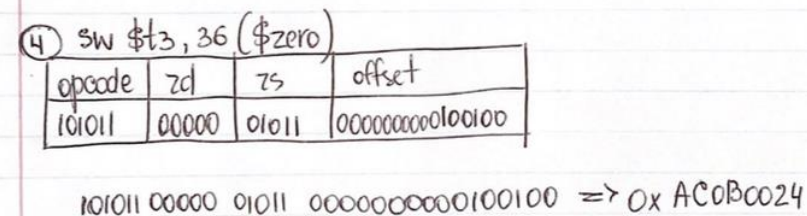 ④ sw $t3, 36($zero)
opcode rd rs offset
101011 00000 01011 0000000000100100
101011 00000 01011 0000000000100100 => 0x AC0B0024